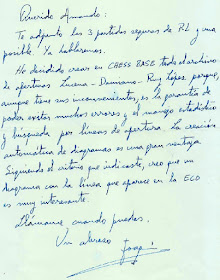 Querido Armando:
Te adjunto las 3 partidas seguras de RL y una
posible. Ya hablaremos.
He decidido crear en CHESS BASE todo el archivo
de aperturas Lucena - Damiano - Ruy López, porque,
aunque tiene sus inconvenientes, es la garantía de
poder evitar muchos errores y el manejo estadístico
y búsqueda por líneas de apertura. La creación
automática de diagramas es una gran ventaja.
Siguiendo el criterio que indicaste, creo que un
diagrama con la línea que aparece en la ECO
es muy interesante.
Llámame cuando puedas.
Un abrazo